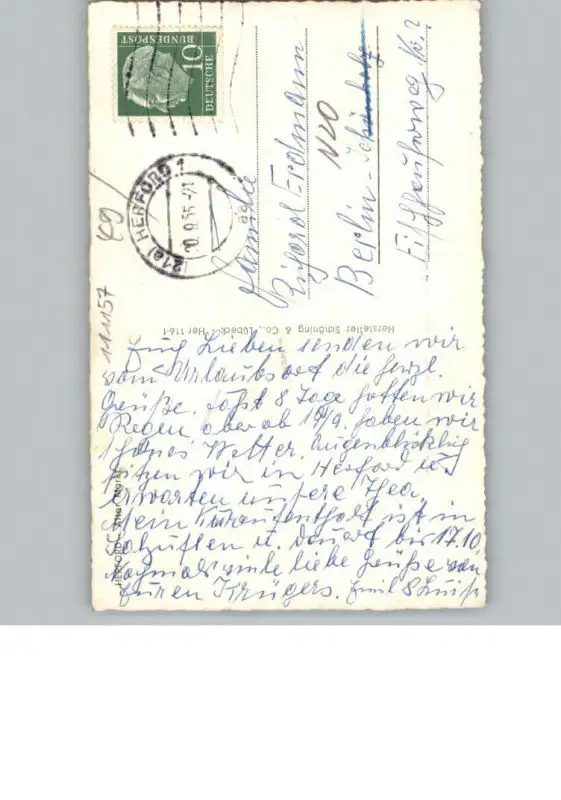 DEUTSCHE
BUNDESPOST
10
(21a) HERFORD 1
Familie
Richard Erdmann
Berlin-
N20
Nr. 2
49/
111157
Hersteller Schöning & Co., Lübeck - Her 116-1
HERFORD - Alter Markt
Euch Lieben senden wir
vom Urlaubsort die herzl.
Grüße. 8 Tage hatten wir
Regen aber ab 10/9. haben wir
schönes Wetter. Augenblicklich
sitzen wir in Herford und
erwarten unsere Thea.
Mein Kuraufenthalt ist in
Salzuflen u. dauert bis 17.10
Nochmals viele liebe Grüße von
Euren Krügers. Emil & Luise